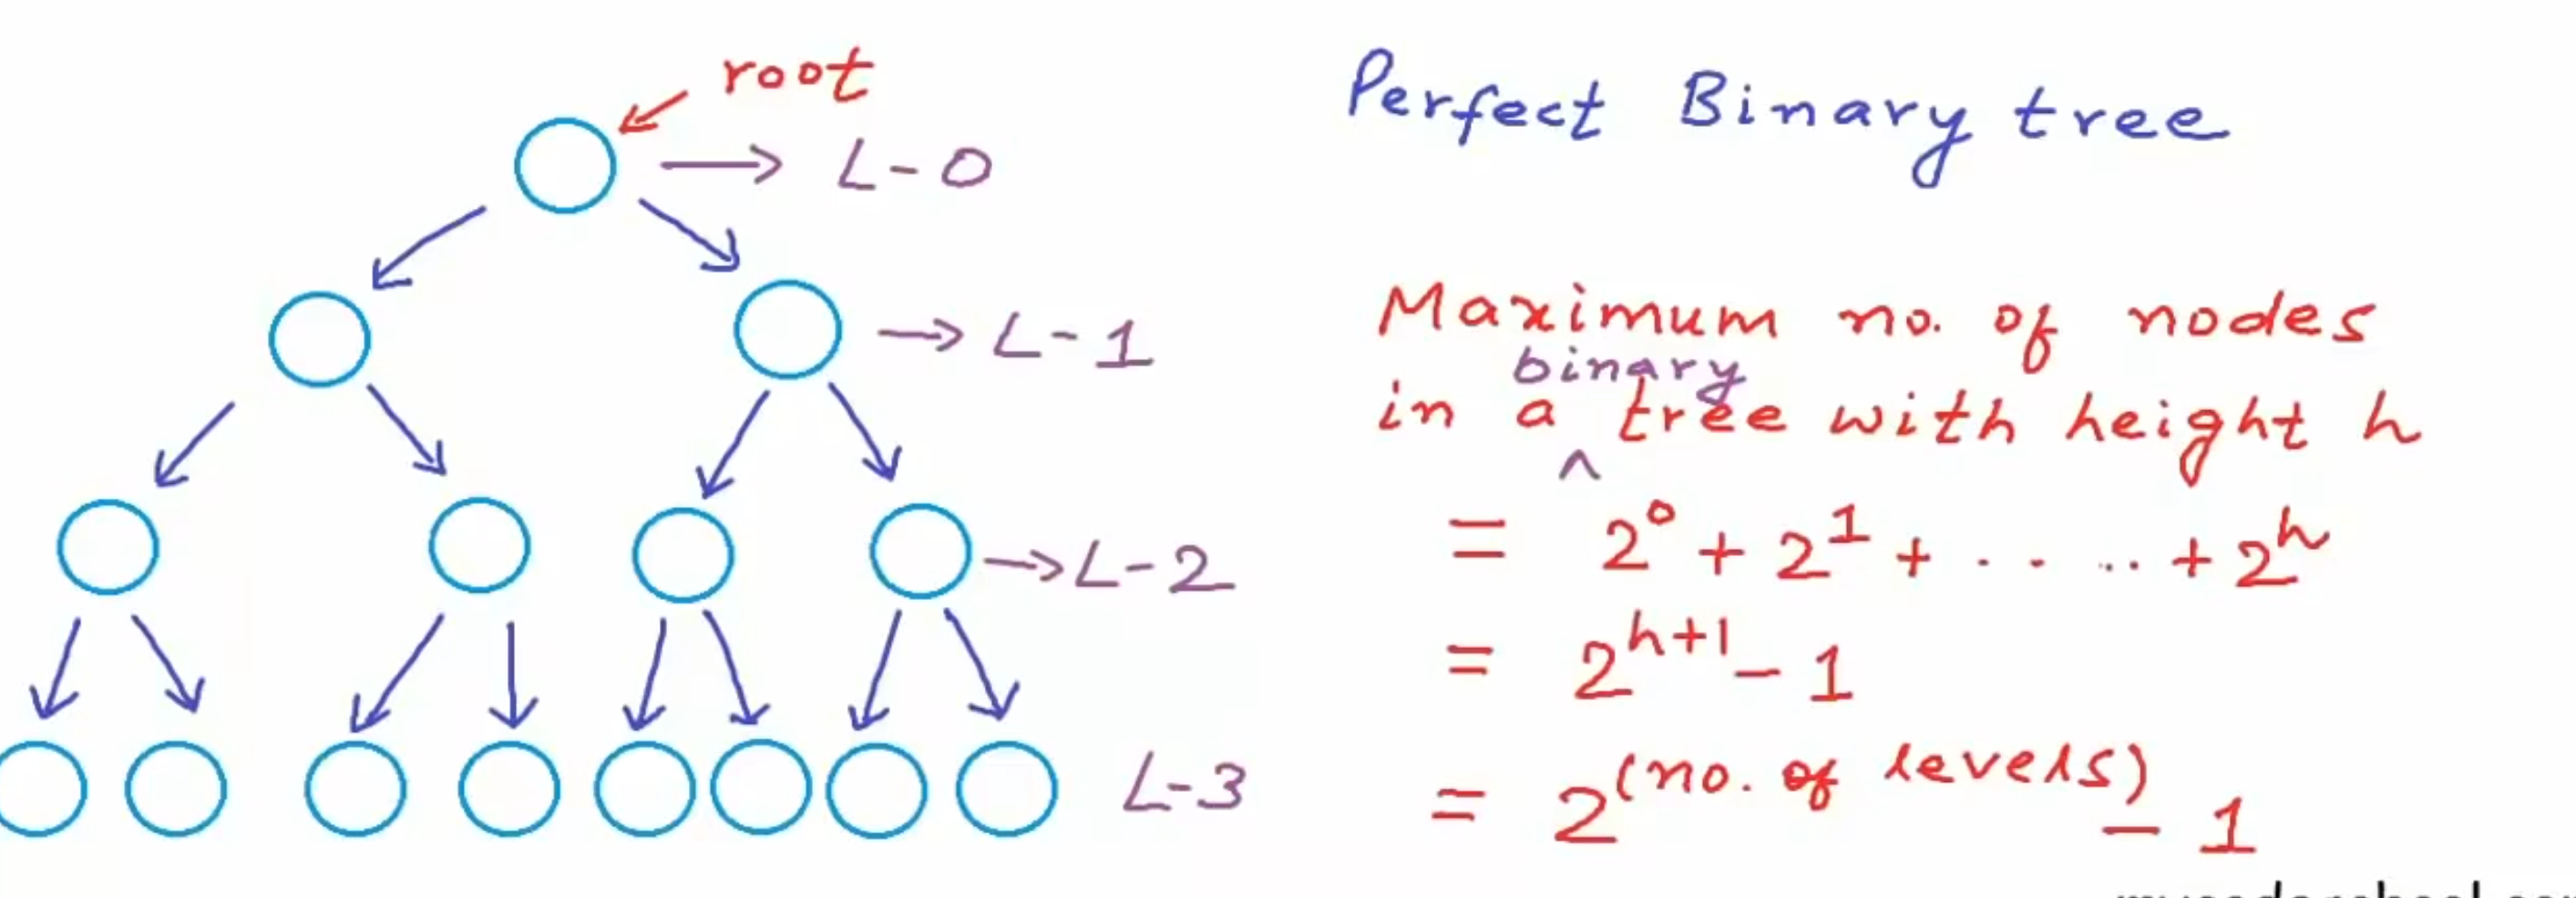 root
L-0
L-1
L-2
L-3
Perfect Binary tree
Maximum no. of nodes
binary
in a ^ tree with height h
= 2⁰ + 2¹ + . . . . + 2ʰ
= 2ʰ⁺¹ - 1
= 2^(no. of levels) - 1